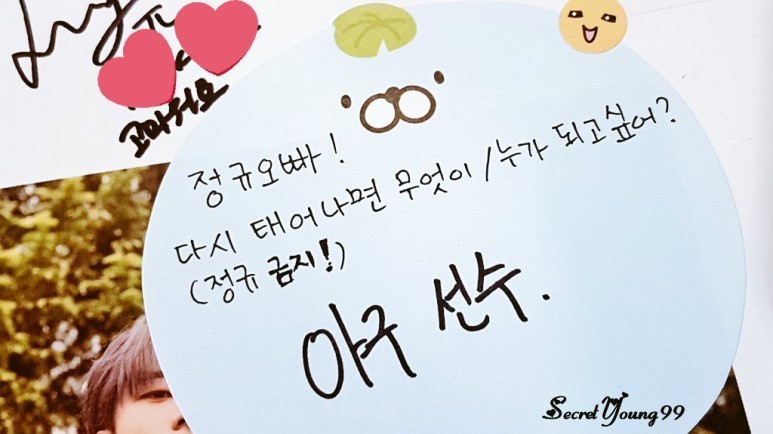 고마워요
정규오빠!
다시 태어나면 무엇이/누가 되고싶어?
(정규 금지!)
야구 선수.
SecretYoung99